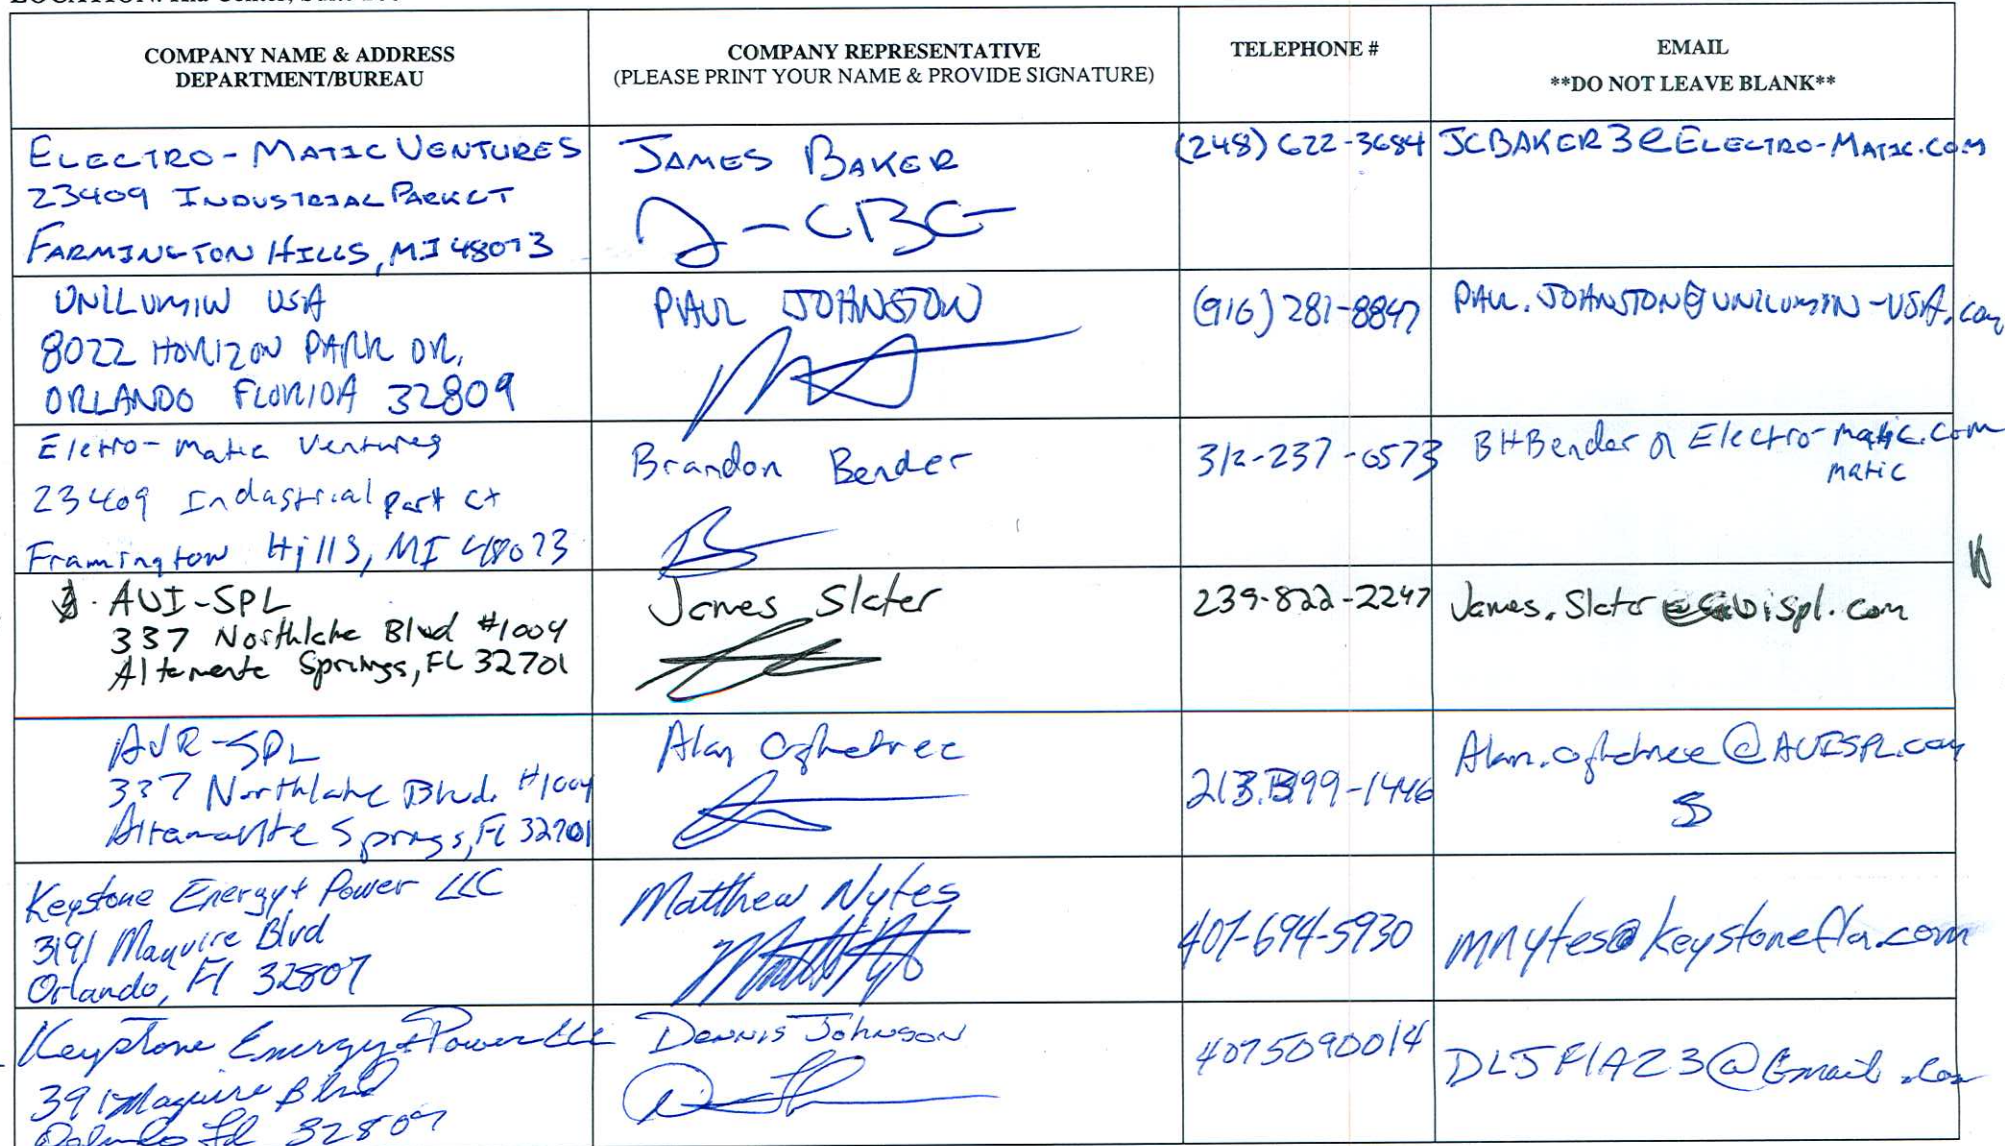 COMPANY NAME & ADDRESS
DEPARTMENT/BUREAU
COMPANY REPRESENTATIVE
(PLEASE PRINT YOUR NAME & PROVIDE SIGNATURE)
TELEPHONE #
EMAIL
**DO NOT LEAVE BLANK**
ELECTRO-MATIC VENTURES
23409 INDUSTRIAL PARK CT
FARMINGTON HILLS, MI 48073
JAMES BAKER
(248) 622-3684
JCBAKER3@ELECTRO-MATIC.COM
UNILUMIN USA
8022 HORIZON PARK DR,
ORLANDO FLORIDA 32809
PAUL JOHNSTON
(916) 281-8847
PAUL.JOHNSTON@UNILUMIN-USA.com
Eletro-matic Ventures
23409 Indastrial part ct
Framington Hills, MI 48073
Brandon Bender
312-237-0573
BHBender @ Electro-matic.com
matic
AVI-SPL
337 Northlake Blvd #1004
Altamonte Springs, FL 32701
James Slater
239-822-2247
James.Slater@avispl.com
AVI-SPL
337 Northlake Blvd. #1004
Altamonte Springs, FL 32701
Alan
213.399-1446
@AVISPL.com
Keystone Energy + Power LLC
3191 Maguire Blvd
Orlando, Fl 32807
Matthew Nytes
407-694-5930
mnytes@keystonefla.com
Keystone Energy + Power LLC
Maguire Blvd
Orlando Fl 32807
Dennis Johnson
4075090014
DLJFlA23@Gmail.com